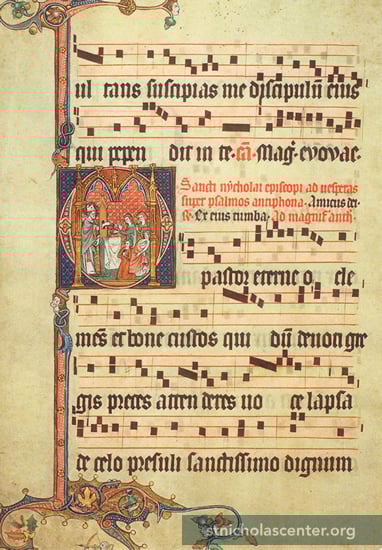 ul tans suscipias me discipulū eius
qui pepen dit in te. Mag̃. evovae.
Sancti nycholai episcopi ad vesperas
super psalmos antiphona. Amicus dei
Ex eius tumba. Ad magnif̃. anth̃.
pastor eterne o cle
mēs et bone custos qui dū devoti gre
gis preces atten deres vo ce lapsa
de celo presuli sanctissimo dignum
stnicholascenter.org